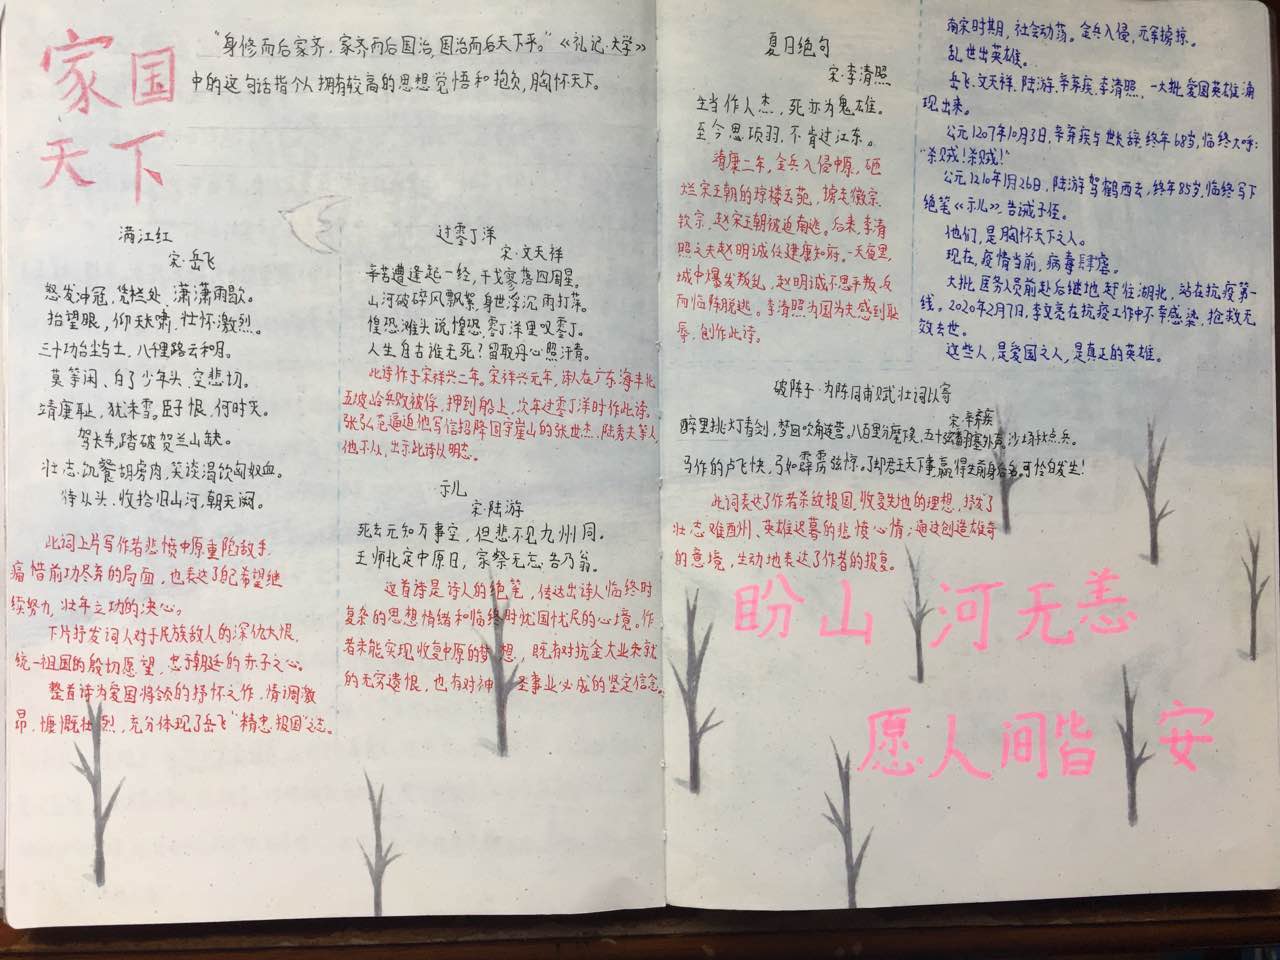 家国
天下
"身修而后家齐，家齐而后国治，国治而后天下平。"《礼记·大学》
中的这句话指个人拥有较高的思想觉悟和抱负，胸怀天下。
满江红
宋·岳飞
怒发冲冠，凭栏处、潇潇雨歇。
抬望眼，仰天长啸，壮怀激烈。
三十功名尘与土，八千里路云和月。
莫等闲、白了少年头，空悲切。
靖康耻，犹未雪。臣子恨，何时灭。
驾长车，踏破贺兰山缺。
壮志饥餐胡虏肉，笑谈渴饮匈奴血。
待从头、收拾旧山河，朝天阙。
此词上片写作者悲愤中原重陷敌手，
痛惜前功尽弃的局面，也表达了自己希望继
续努力，壮年立功的决心。
下片抒发词人对于民族敌人的深仇大恨，
统一祖国的殷切愿望，忠于朝廷的赤子之心。
整首诗为爱国将领的抒怀之作，情调激
昂，慷慨壮烈，充分体现了岳飞"精忠报国"之志。
过零丁洋
宋·文天祥
辛苦遭逢起一经，干戈寥落四周星。
山河破碎风飘絮，身世浮沉雨打萍。
惶恐滩头说惶恐，零丁洋里叹零丁。
人生自古谁无死？留取丹心照汗青。
此诗作于宋祥兴二年。宋祥兴元年，诗人在广东海丰北
五坡岭兵败被俘，押到船上，次年过零丁洋时作此诗。
张弘范逼迫他写信招降固守崖山的张世杰、陆秀夫等人，
他不从，出示此诗以明志。
示儿
宋·陆游
死去元知万事空，但悲不见九州同。
王师北定中原日，家祭无忘告乃翁。
这首诗是诗人的绝笔，传达出诗人临终时
复杂的思想情绪和临终时忧国忧民的心境。作
者未能实现收复中原的梦想，既有对抗金大业未就
的无穷遗恨，也有对神圣事业必成的坚定信念。
夏日绝句
宋·李清照
生当作人杰，死亦为鬼雄。
至今思项羽，不肯过江东。
靖康二年，金兵入侵中原，砸
烂宋王朝的琼楼玉苑，掳走徽宗、
钦宗，赵宋王朝被迫南逃。后来，李清
照之夫赵明诚任建康知府。一天夜里，
城中爆发叛乱，赵明诚不思平叛，反
而临阵脱逃。李清照为国为夫感到耻
辱，创作此诗。
南宋时期，社会动荡。金兵入侵，元军掳掠。
乱世出英雄。
岳飞、文天祥、陆游、辛弃疾、李清照，一大批爱国英雄涌
现出来。
公元1207年10月3日，辛弃疾与世长辞，终年68岁，临终大呼：
"杀贼！杀贼！"
公元1210年1月26日，陆游驾鹤西去，终年85岁，临终写下
绝笔《示儿》，告诫子侄。
他们，是胸怀天下之人。
现在，疫情当前，病毒肆虐。
大批医务人员前赴后继地赶往湖北，站在抗疫第一
线。2020年2月7日，李文亮在抗疫工作中不幸感染，抢救无
效去世。
这些人，是爱国之人，是真正的英雄。
破阵子·为陈同甫赋壮词以寄
宋·辛弃疾
醉里挑灯看剑，梦回吹角连营。八百里分麾下炙，五十弦翻塞外声。沙场秋点兵。
马作的卢飞快，弓如霹雳弦惊。了却君王天下事，赢得生前身后名。可怜白发生！
此词表达了作者杀敌报国，收复失地的理想，抒发了
壮志难酬、英雄迟暮的悲愤心情，通过创造雄奇
的意境，生动地表达了作者的报复。
盼山河无恙
愿人间皆安